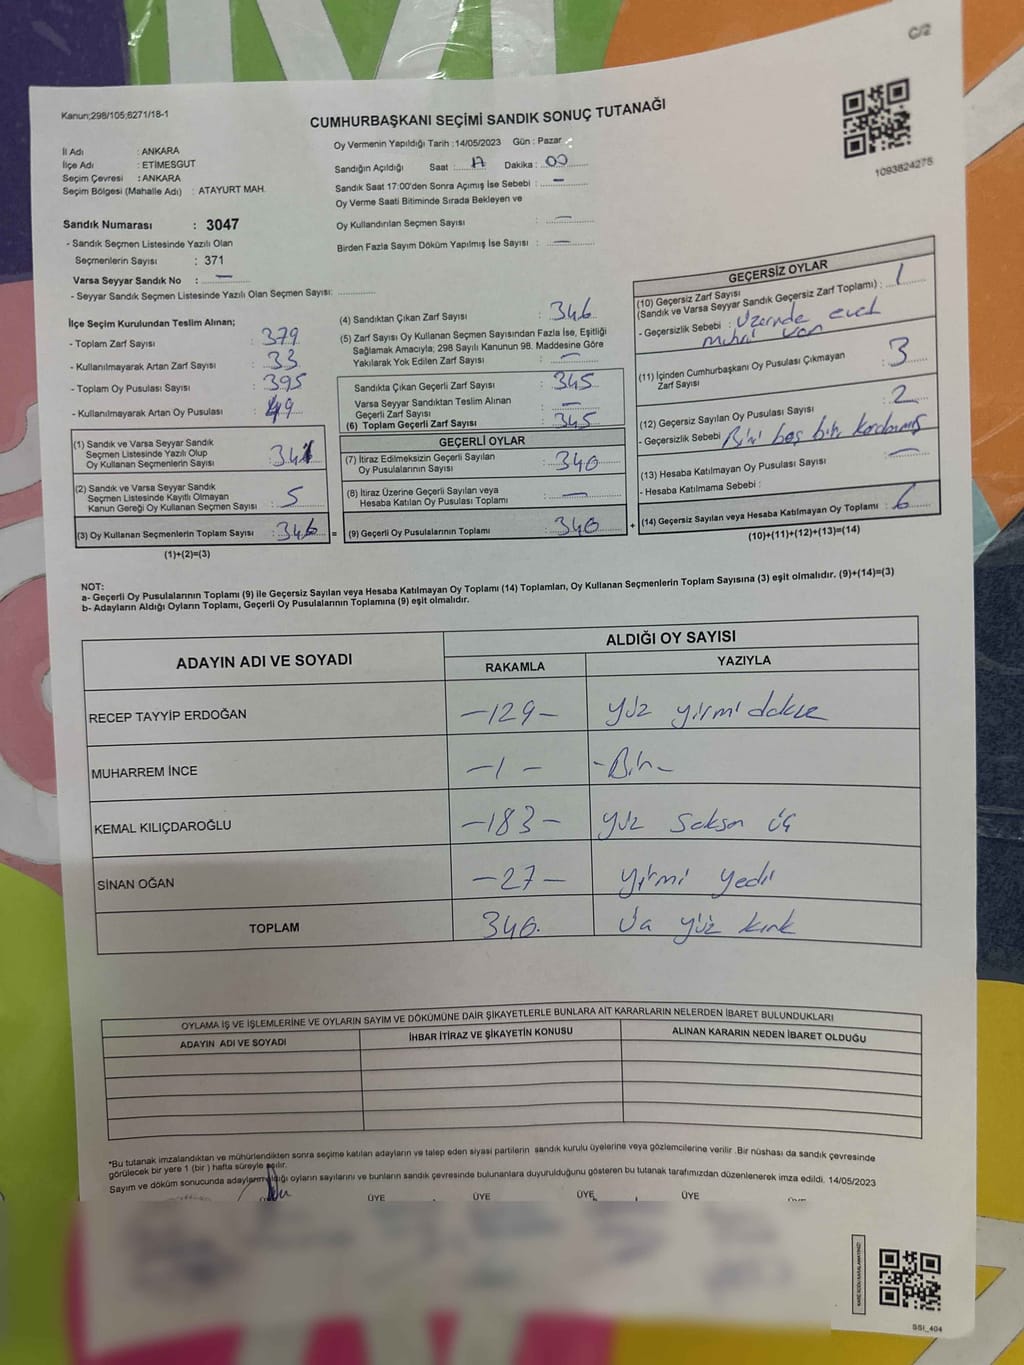 C/2
Kanun;298/105;6271/18-1
CUMHURBAŞKANI SEÇİMİ SANDIK SONUÇ TUTANAĞI
1093824275
İl Adı : ANKARA
İlçe Adı : ETİMESGUT
Seçim Çevresi : ANKARA
Seçim Bölgesi (Mahalle Adı) : ATAYURT MAH.
Oy Vermenin Yapıldığı Tarih :14/05/2023 Gün : Pazar
Sandığın Açıldığı Saat : 17 Dakika : 00
Sandık Saat 17:00'den Sonra Açımış İse Sebebi : —
Oy Verme Saati Bitiminde Sırada Bekleyen ve
Oy Kullandırılan Seçmen Sayısı : —
Birden Fazla Sayım Döküm Yapılmış İse Sayısı : —
Sandık Numarası : 3047
- Sandık Seçmen Listesinde Yazılı Olan
Seçmenlerin Sayısı : 371
Varsa Seyyar Sandık No : —
- Seyyar Sandık Seçmen Listesinde Yazılı Olan Seçmen Sayısı:
İlçe Seçim Kurulundan Teslim Alınan;
- Toplam Zarf Sayısı : 379
- Kullanılmayarak Artan Zarf Sayısı : 33
- Toplam Oy Pusulası Sayısı : 395
- Kullanılmayarak Artan Oy Pusulası : 49
(1) Sandık ve Varsa Seyyar Sandık
Seçmen Listesinde Yazılı Olup
Oy Kullanan Seçmenlerin Sayısı : 341
(2) Sandık ve Varsa Seyyar Sandık
Seçmen Listesinde Kayıtlı Olmayan
Kanun Gereği Oy Kullanan Seçmen Sayısı : 5
(3) Oy Kullanan Seçmenlerin Toplam Sayısı : 346 =
(1)+(2)=(3)
(4) Sandıktan Çıkan Zarf Sayısı : 346
(5) Zarf Sayısı Oy Kullanan Seçmen Sayısından Fazla İse, Eşitliği
Sağlamak Amacıyla; 298 Sayılı Kanunun 98. Maddesine Göre
Yakılarak Yok Edilen Zarf Sayısı : —
Sandıkta Çıkan Geçerli Zarf Sayısı : 345
Varsa Seyyar Sandıktan Teslim Alınan
Geçerli Zarf Sayısı : —
(6) Toplam Geçerli Zarf Sayısı : 345
GEÇERLİ OYLAR
(7) İtiraz Edilmeksizin Geçerli Sayılan
Oy Pusulalarının Sayısı : 340
(8) İtiraz Üzerine Geçerli Sayılan veya
Hesaba Katılan Oy Pusulası Toplamı : —
(9) Geçerli Oy Pusulalarının Toplamı : 340 +
GEÇERSİZ OYLAR
(10) Geçersiz Zarf Sayısı
(Sandık ve Varsa Seyyar Sandık Geçersiz Zarf Toplamı) : 1
- Geçersizlik Sebebi : Üzerinde evet
mührü var
(11) İçinden Cumhurbaşkanı Oy Pusulası Çıkmayan
Zarf Sayısı : 3
(12) Geçersiz Sayılan Oy Pusulası Sayısı : 2
- Geçersizlik Sebebi Biri boş biri
(13) Hesaba Katılmayan Oy Pusulası Sayısı : —
- Hesaba Katılmama Sebebi :
(14) Geçersiz Sayılan veya Hesaba Katılmayan Oy Toplamı : 6
(10)+(11)+(12)+(13)=(14)
NOT:
a- Geçerli Oy Pusulalarının Toplamı (9) ile Geçersiz Sayılan veya Hesaba Katılmayan Oy Toplamı (14) Toplamları, Oy Kullanan Seçmenlerin Toplam Sayısına (3) eşit olmalıdır. (9)+(14)=(3)
b- Adayların Aldığı Oyların Toplamı, Geçerli Oy Pusulalarının Toplamına (9) eşit olmalıdır.
ADAYIN ADI VE SOYADI
ALDIĞI OY SAYISI
RAKAMLA YAZIYLA
RECEP TAYYİP ERDOĞAN -129- yüz yirmi dokuz
MUHARREM İNCE -1- -Bir-
KEMAL KILIÇDAROĞLU -183- yüz seksen üç
SİNAN OĞAN -27- yirmi yedi
TOPLAM 340. Üç yüz kırk
OYLAMA İŞ VE İŞLEMLERİNE VE OYLARIN SAYIM VE DÖKÜMÜNE DAİR ŞİKAYETLERLE BUNLARA AİT KARARLARIN NELERDEN İBARET BULUNDUKLARI
ADAYIN ADI VE SOYADI İHBAR İTİRAZ VE ŞİKAYETİN KONUSU ALINAN KARARIN NEDEN İBARET OLDUĞU
*Bu tutanak imzalandıktan ve mühürlendikten sonra seçime katılan adayların ve talep eden siyasi partilerin sandık kurulu üyelerine veya gözlemcilerine verilir .Bir nüshası da sandık çevresinde
görülecek bir yere 1 (bir ) hafta süreyle asılır.
Sayım ve döküm sonucunda adayların aldığı oyların sayılarını ve bunların sandık çevresinde bulunanlara duyurulduğunu gösteren bu tutanak tarafımızdan düzenlenerek imza edildi. 14/05/2023
ÜYE ÜYE ÜYE ÜYE
SSI_404